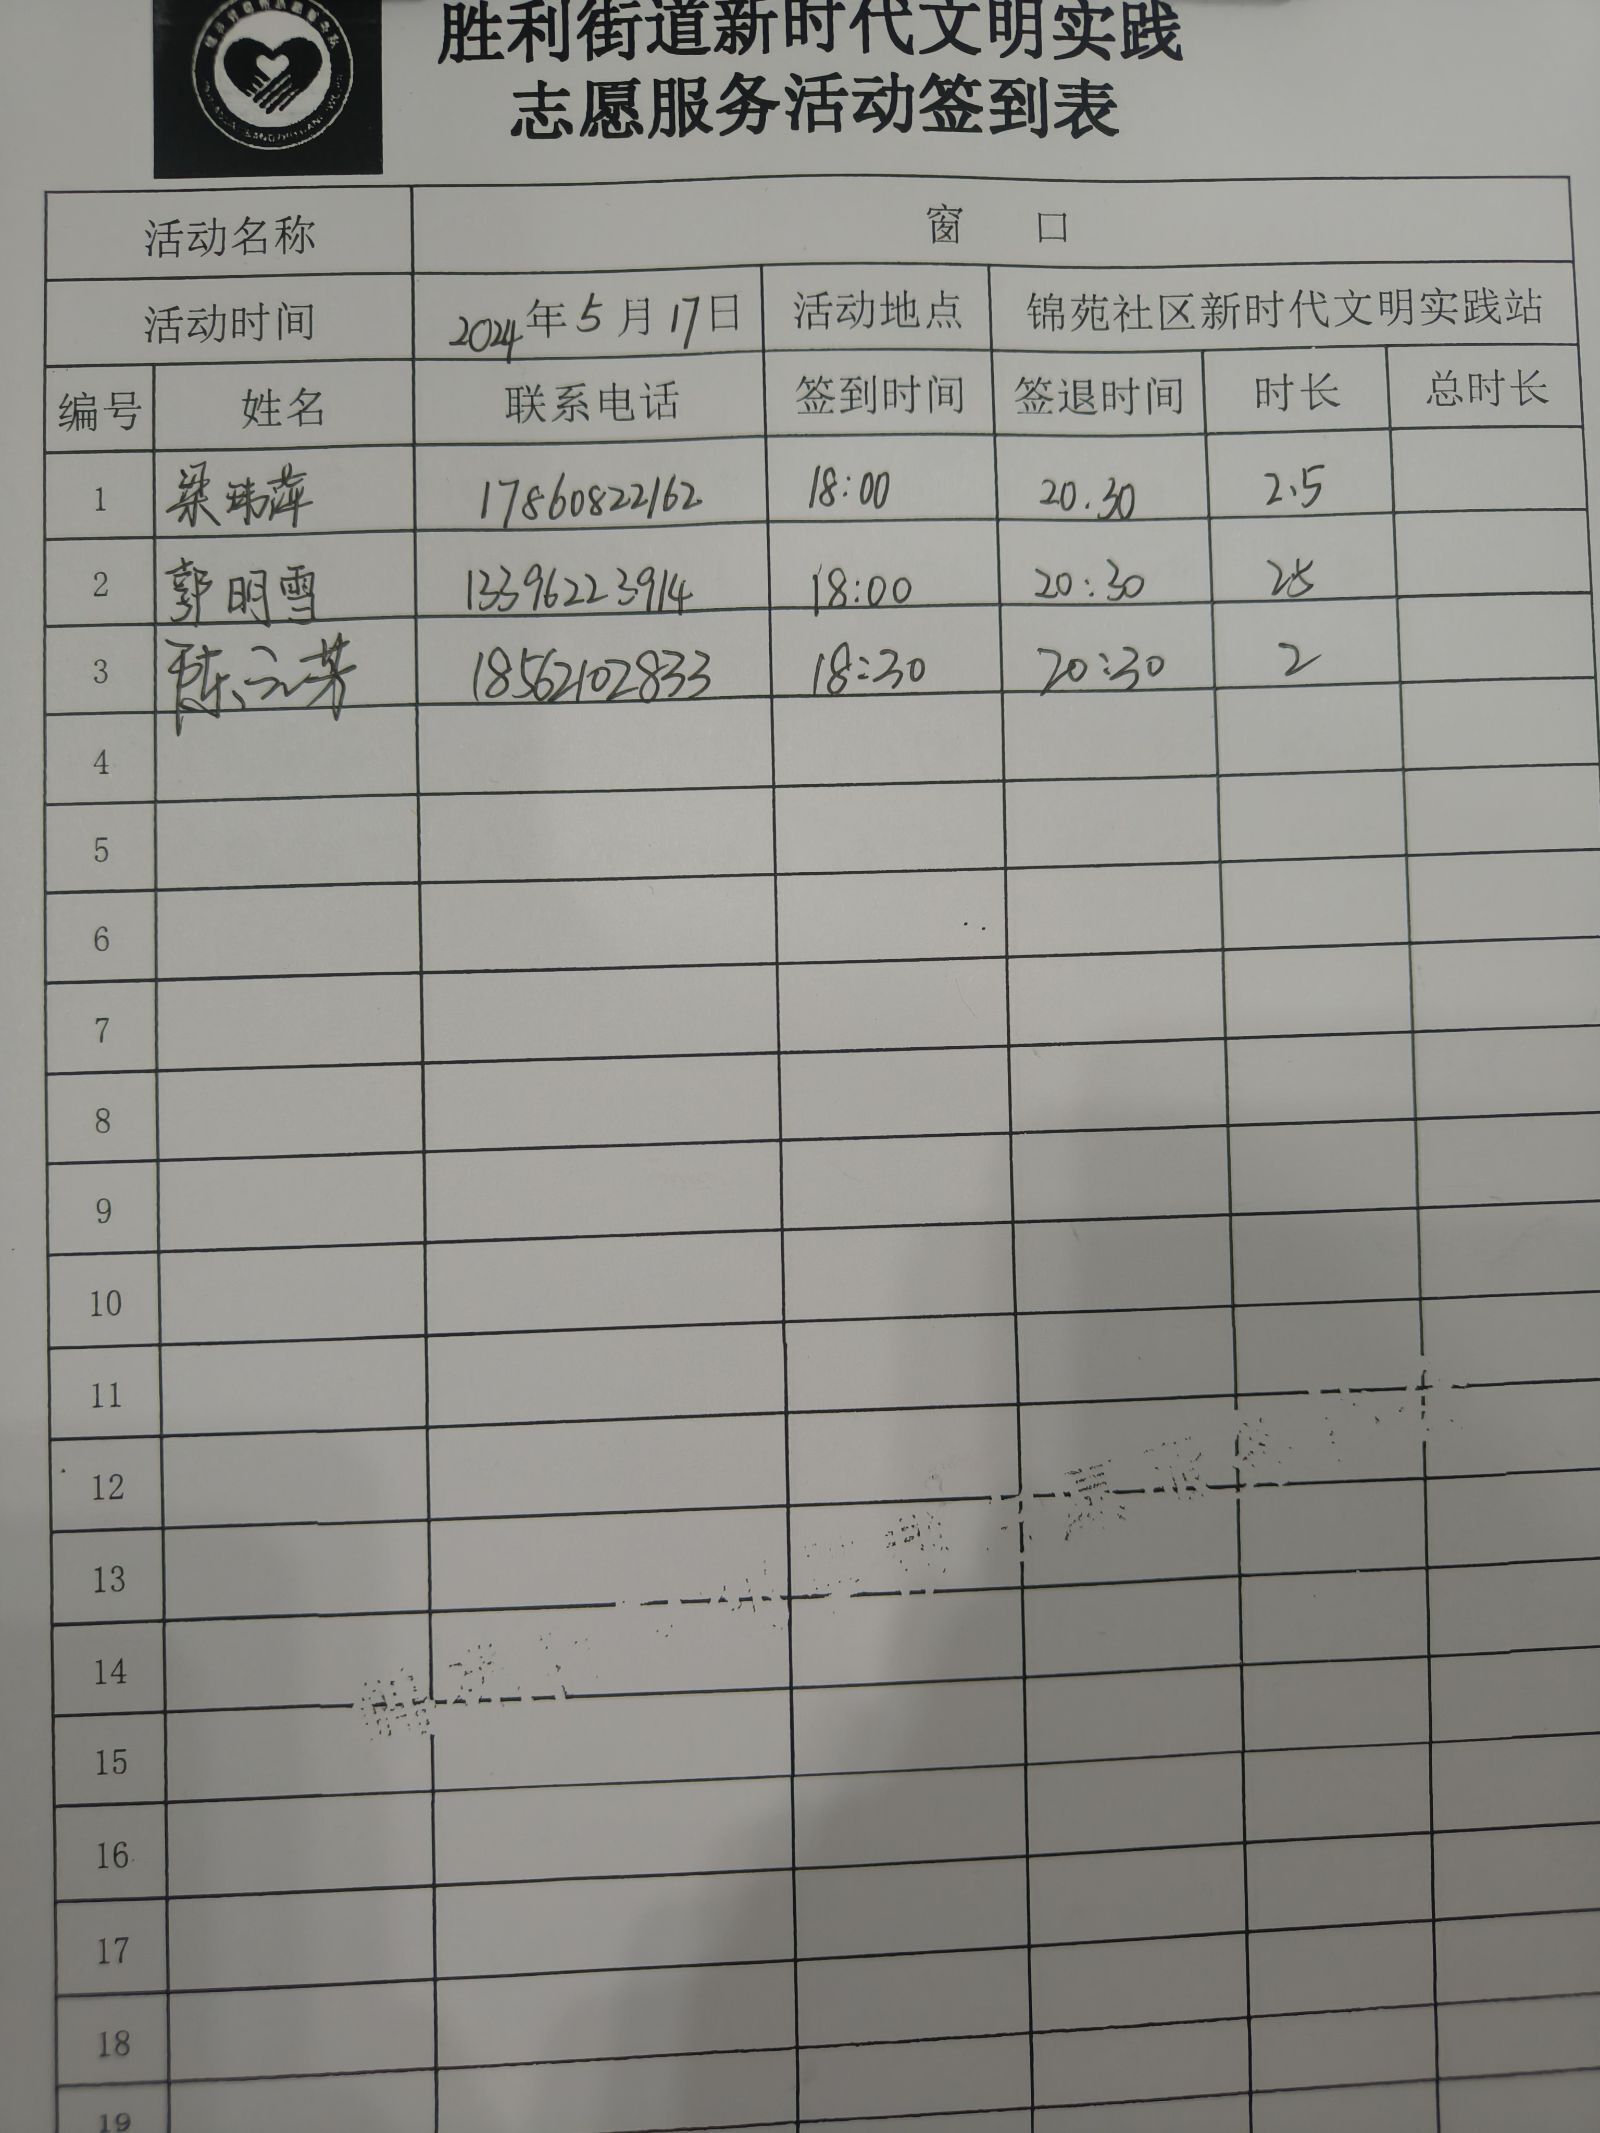 胜利街道新时代文明实践
志愿服务活动签到表
活动名称 窗 口
活动时间 2024年5月17日 活动地点 锦苑社区新时代文明实践站
编号 姓名 联系电话 签到时间 签退时间 时长 总时长
1 梁玮萍 17860822162 18:00 20.30 2.5
2 郭明雪 13396223914 18:00 20:30 25
3 陈云芳 18562102833 18:30 20:30 2
4
5
6
7
8
9
10
11
12
13
14
15
16
17
18
19